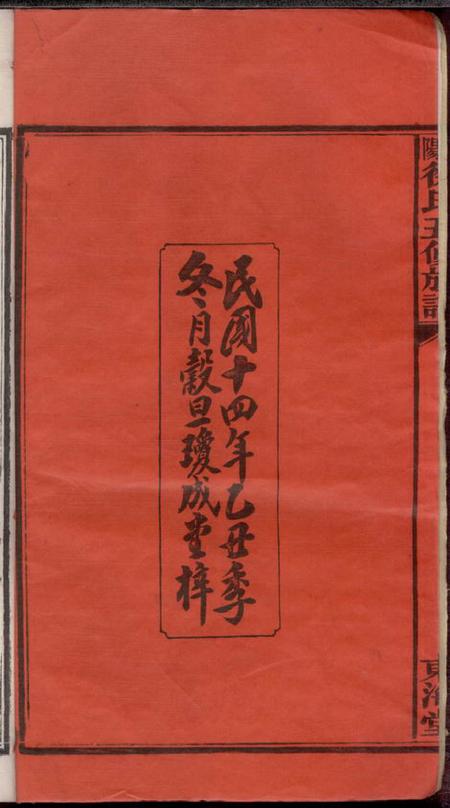 民國十四年乙丑季
冬月穀旦瓊成堂梓
陽徐氏五修族譜
東海堂